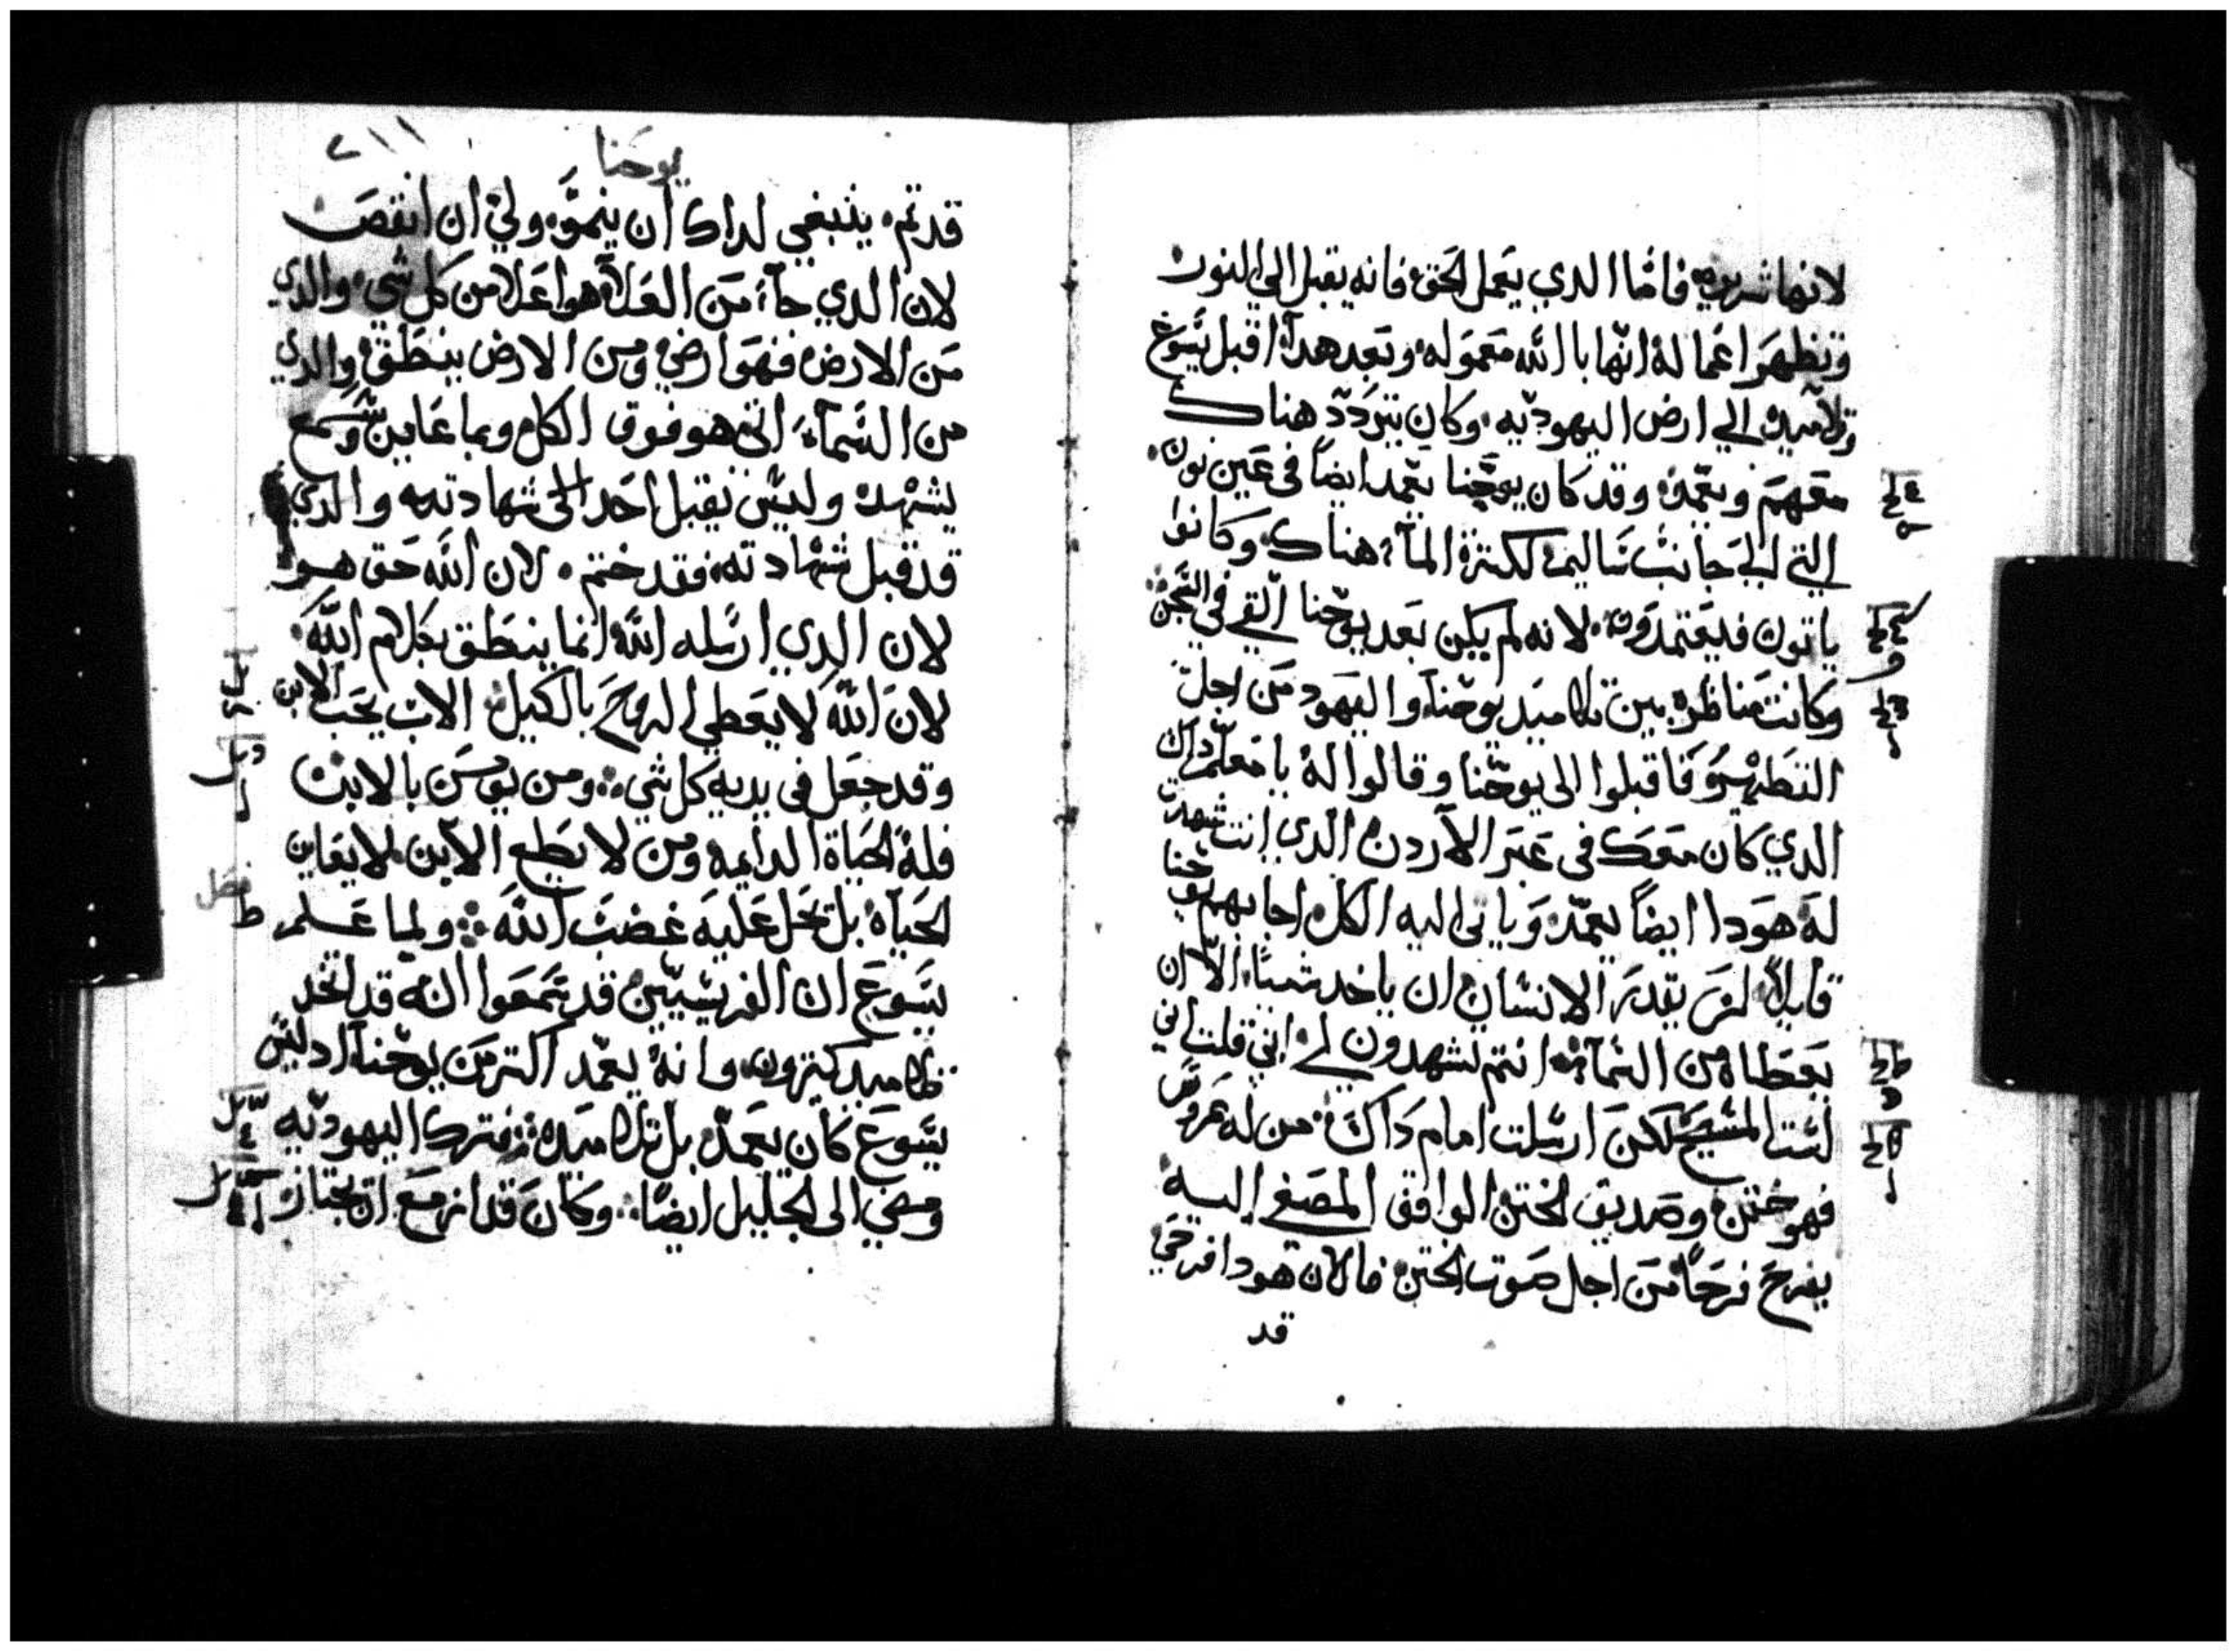 لانها شريره فامّا الدي يعمل الحق فانه يقبل الى النور
وتظهر اعماله انها بالله معموله وبعد هدا اقبل يسوع
وتلاميده الي ارض اليهوديه وكان يتردد هناك
معهم ويعمد وقد كان يوحنا يعمد ايضاً في عين نون
التي الي جانب ساليم لكترة المآء هناك وكانوا
ياتون فيعتمدون لانه لم يكن بعد يوحنا القي في السجن
وكانت مناظره بين تلاميد يوحنا واليهود من اجل
التطهير فاقبلوا الى يوحنا وقالوا له يا معلم داك
الدي كان معك في عبر الاردن الدي انت شهدت
له هودا ايضاً يعمد وياتي اليه الكل اجابهم يوحنا
قايلاً لن يقدر الانسان ان ياخد شيئاً الا ان
يعطاه من السماء انتم تشهدون لي انني قلت اني
لست المسيح لكن ارسلت امام داك من له عروس
فهو ختن وصديق الختن الواقف المصغي اليه
يفرح فرحاً من اجل صوت الختن فالان هودا فرحي
قد
يوحنا
٢١١
قد تم ينبغي لداك ان ينمو ولي ان انقص
لان الدي جآء من العلا هو اعلا من كل شي والدي
من الارض فهو ارضي ومن الارض ينطق والدي
من السمآء اتى هو فوق الكل وبما عاين وسمع
يشهد وليس يقبل احد شهادته والدي
قد قبل شهادته فقد ختم لان الله حق هو
لان الدي ارسله الله انما ينطق بكلام الله
لان الله لا يعطي الروح بالكيل الاب يحب الابن
وقد جعل في يديه كل شي ومن يومن بالابن
فله الحياة الدايمه ومن لا يطيع الابن لا يعاين
الحياه بل تحل عليه غضب الله ولما علم
يسوع ان الفريسيين قد سمعوا انه قد اتخد
تلاميد كتيرون وانه يعمد اكتر من يوحنا اد ليس
يسوع كان يعمد بل تلاميده فترك اليهوديه
ومضي الى الجليل ايضاً وكان قد ازمع ان يجتاز